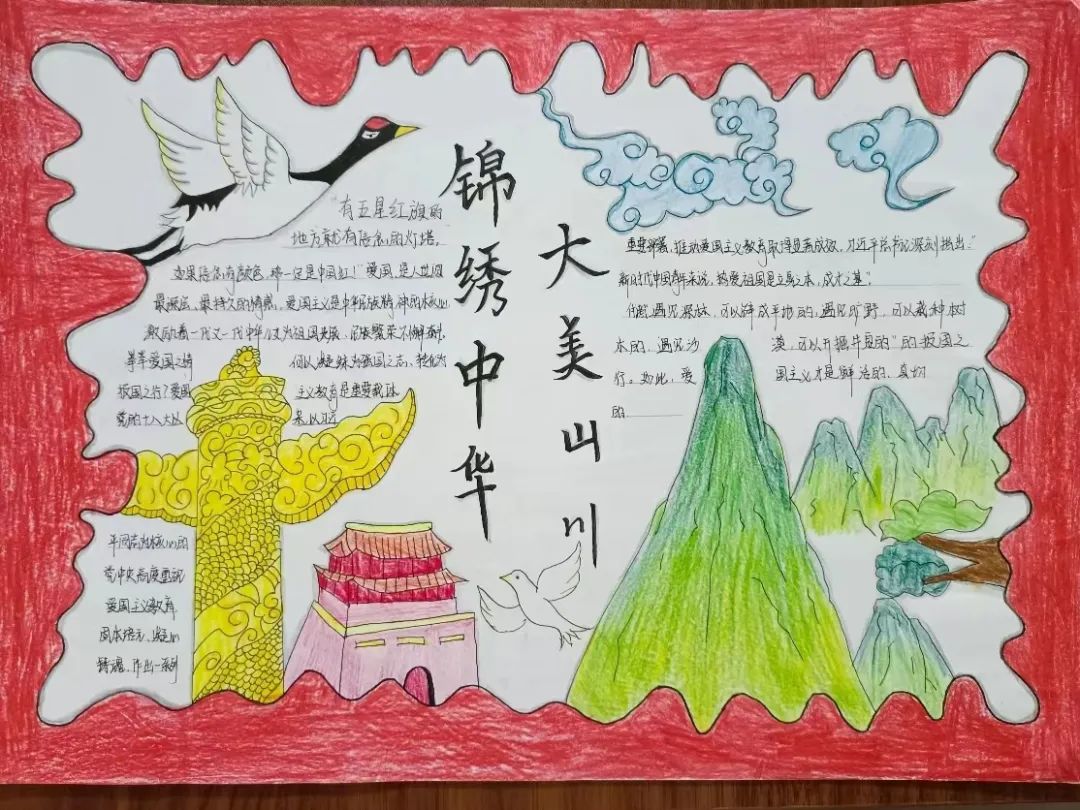 锦绣中华
大美山川
"有五星红旗的
地方就有信念的灯塔,
如果信仰有颜色,那一定是中国红!"爱国,是人世间
最深层、最持久的情感,爱国主义是中华民族精神的核心
激励着一代又一代中华儿女为祖国发展、民族繁荣不懈奋斗,
尊享爱国之情
何以凝练为强国之志,转化为
报国之行?爱国
主义教育是重要载体
党的十八大以
来,以习近
平同志为核心的
党中央高度重视
爱国主义教育,
固本培元、凝心
铸魂,作出一系列
重要部署,推动爱国主义教育取得显著成效,习近平总书记深刻指出:"
新时代中国青年来说,热爱祖国是立身之本,成才之基。"
遇见深林,可以辟成平地的,遇见旷野,可以栽种树
木的,遇见沙
漠,可以开掘井泉的"的报国之
行。如此,爱
国主义才是鲜活的、真切
的